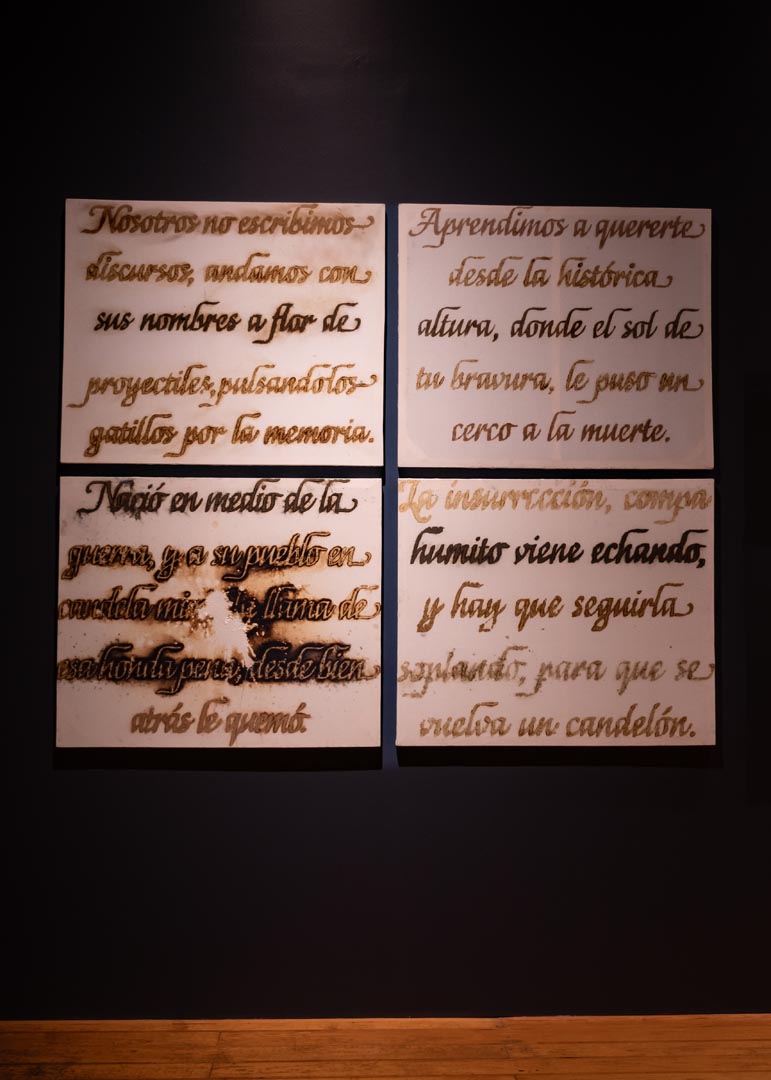 Nosotros no escribimos
discursos, andamos con
sus nombres a flor de
proyectiles, pulsandolos
gatillos por la memoria.
Aprendimos a quererte
desde la histórica
altura, donde el sol de
tu bravura, le puso un
cerco a la muerte.
Nació en medio de la
guerra, y a su pueblo en
candela llama de
esa honda pena, desde bien
atrás le quemó.
La insurrección, compa
humito viene echando,
y hay que seguirla
soplando, para que se
vuelva un candelón.